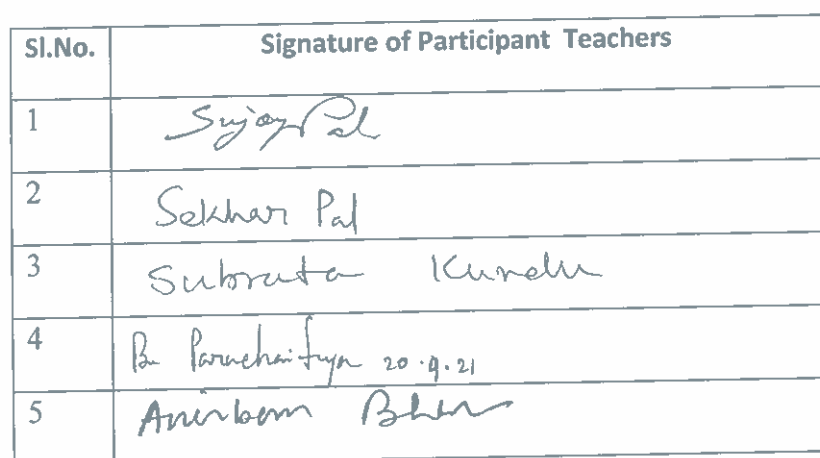 Sl.No. Signature of Participant Teachers
1 Sujoy Pal
2 Sekhar Pal
3 Subrata Kundu
4 20.9.21
5 Anirban